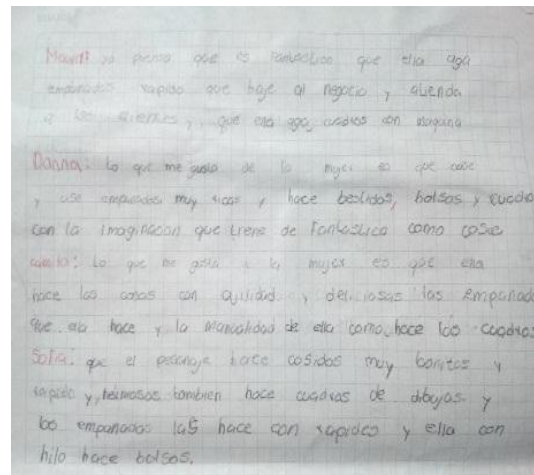 yo pienso que es fantastico que ella aga
empanadas rapido que baje al negocio y atienda
a los clientes, que ella aga cuadros con maquina
Danna: Lo que me gusta de la mujer es que cose
y ase empanadas muy ricas y hace bestidos, bolsas y cuadro
con la imaginacion que tiene de fantastico como cose
camila: Lo que me gusta a la mujer es que ella
hace las cosas con agilidad y deliciosas las Empanad
que ella hace y la manualidad de ella como hace los cuadros
Sofia: que el personaje hace cosidos muy bonitos y
rapido y, heimosos tambien hace cuadros de dibujos y
las empanadas las hace con rapides y ella con
hilo hace bolsos.